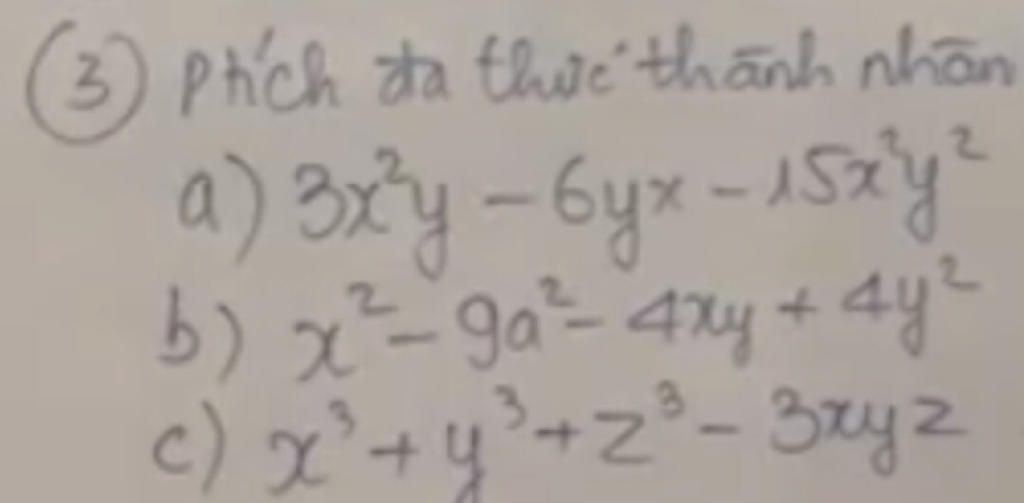 ③ ptích đa thức thành nhân
a) 3x²y - 6yx - 15x²y²
b) x² - 9a² - 4xy + 4y²
c) x³ + y³ + z³ - 3xyz